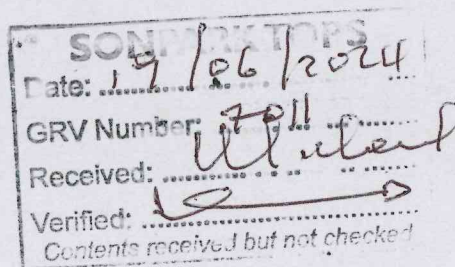 SONPARK TOPS
Date: 19/06/2024
GRV Number: 7011
Received:
Verified:
Contents received but not checked